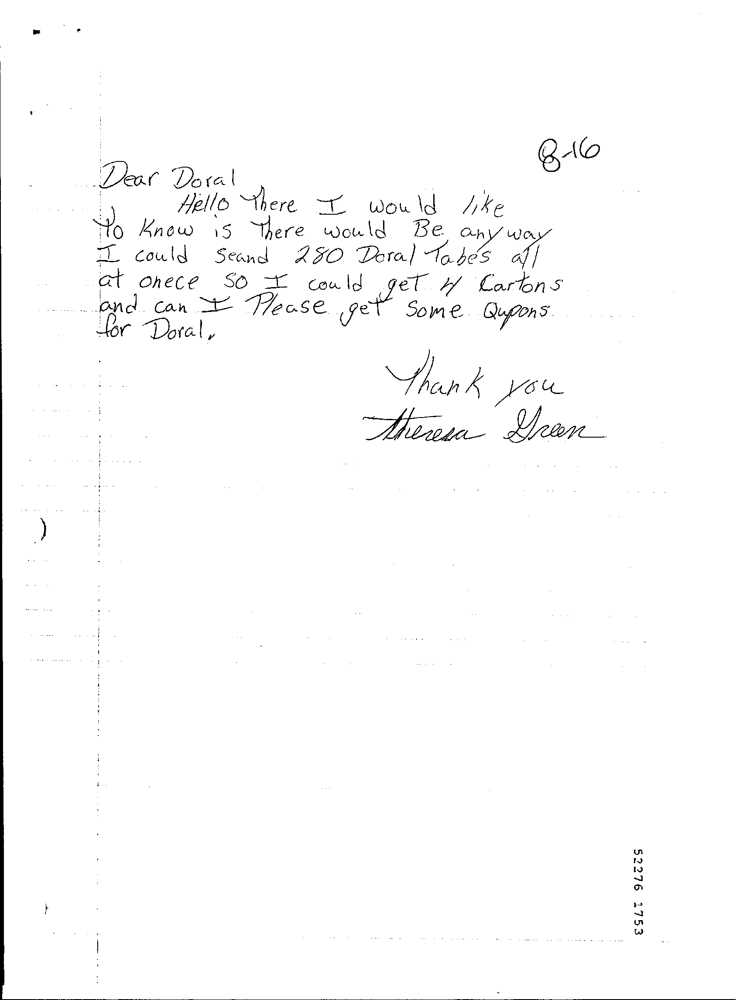 8-16
Dear Doral
Hello There I would like
To Know is There would Be anyway
I could Seand 280 Doral Tabes all
at onece So I could get 4 Cartons
and can I Please get Some Qupons
for Doral.
Thank you
Theresa Green
52276 1753